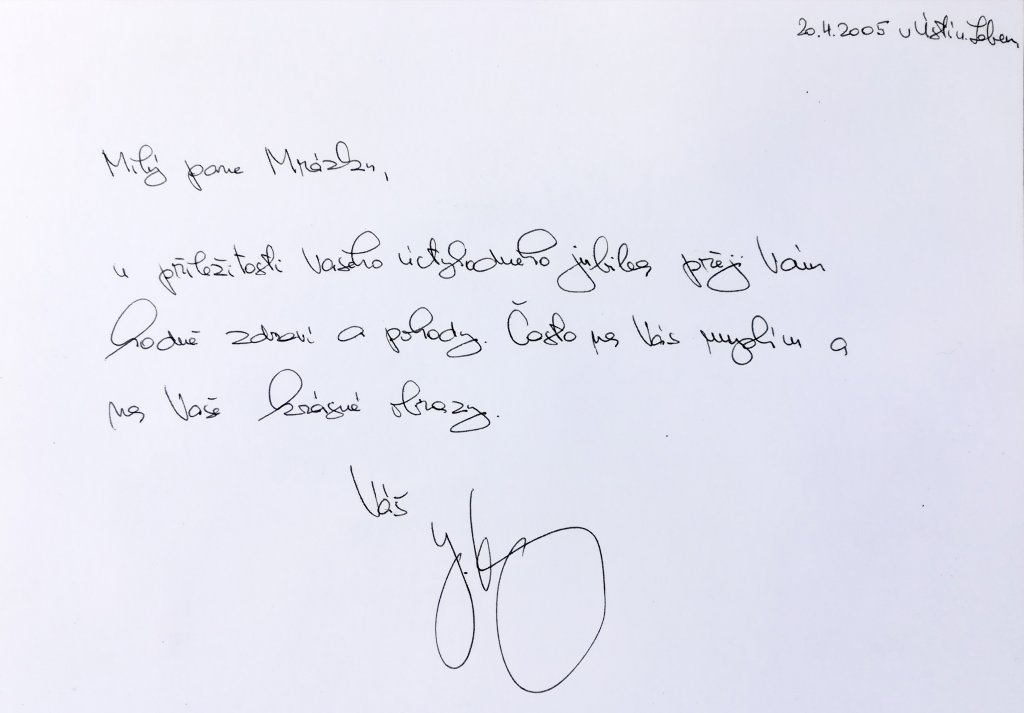 20.4.2005 v Ústí n. Labem
Milý pane Mrázku,
u příležitosti Vašeho úctyhodného jubilea přeji Vám
hodně zdraví a pohody. Často na Vás myslím a
na Vaše krásné obrazy.
Váš